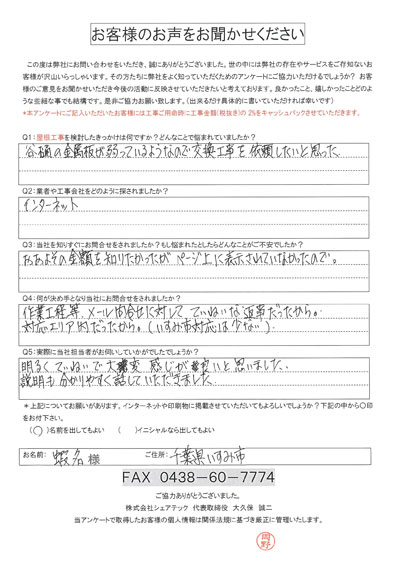 お客様のお声をお聞かせください
この度は弊社にお問い合わせをいただき、誠にありがとうございました。世の中には弊社の存在やサービスをご存知ないお
客様が沢山いらっしゃいます。その方たちに弊社をよく知っていただくためのアンケートにご協力いただけるでしょうか? お客
様のご意見をお聞かせいただき今後の活動に反映させていただきたいと考えております。良かったこと、嬉しかったことどのよ
うな些細な事でも結構です。是非ご協力お願い致します。（出来るだけ具体的に書いていただければ幸いです）
*本アンケートにご記入いただいたお客様には工事ご用命時に工事金額(税抜き)の2%をキャッシュバックさせていただきます。
Q1:屋根工事を検討したきっかけは何ですか?どんなことで悩まれていましたか?
谷樋の金属板が弱っているようなので交換工事を依頼したいと思った
Q2:業者や工事会社をどのように探されましたか?
インターネット
Q3:当社を知りすぐにお問合せをされましたか?もし悩まれたとしたらどんなことがご不安でしたか?
おおよその金額を知りたかったがページ上に表示されていなかったので。
Q4:何が決め手となり当社にお問合せをされましたか?
作業工程等、メール問合せに対して、ていねいな返事だったから。
対応エリア内だったから。(いすみ市対応は少ない)
Q5:実際に当社担当者がお伺いしていかがでしたでしょうか?
明るくていねいで大変感じが良いと思いました。
説明も分かりやすく話していただきました。
*上記についてお願いがあります。インターネットや印刷物に掲載させていただいてもよろしいでしょうか?下記の中から〇印
をお付下さい。
(〇)名前を出してもよい ( )イニシャルなら出してもよい
お名前: 蝦名 様 ご住所: 千葉県いすみ市
FAX 0438-60-7774
ご協力ありがとうございました。
株式会社シェアテック 代表取締役 大久保 誠二
当アンケートで取得したお客様の個人情報は関係法規に基づき厳正に管理いたします。
岡野